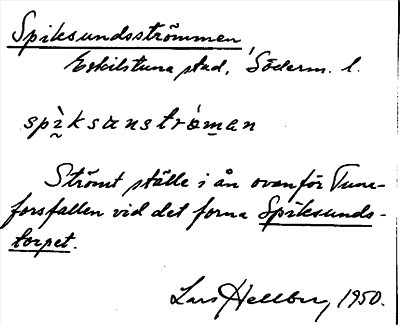 Spiksundsströmmen,
Eskilstuna stad, Söderm. l.
spìksunströ̀man
Strömt ställe i ån ovanför Tune-
forsfallen vid det forna Spiksunds-
torpet.
Lars Hellberg, 1950.